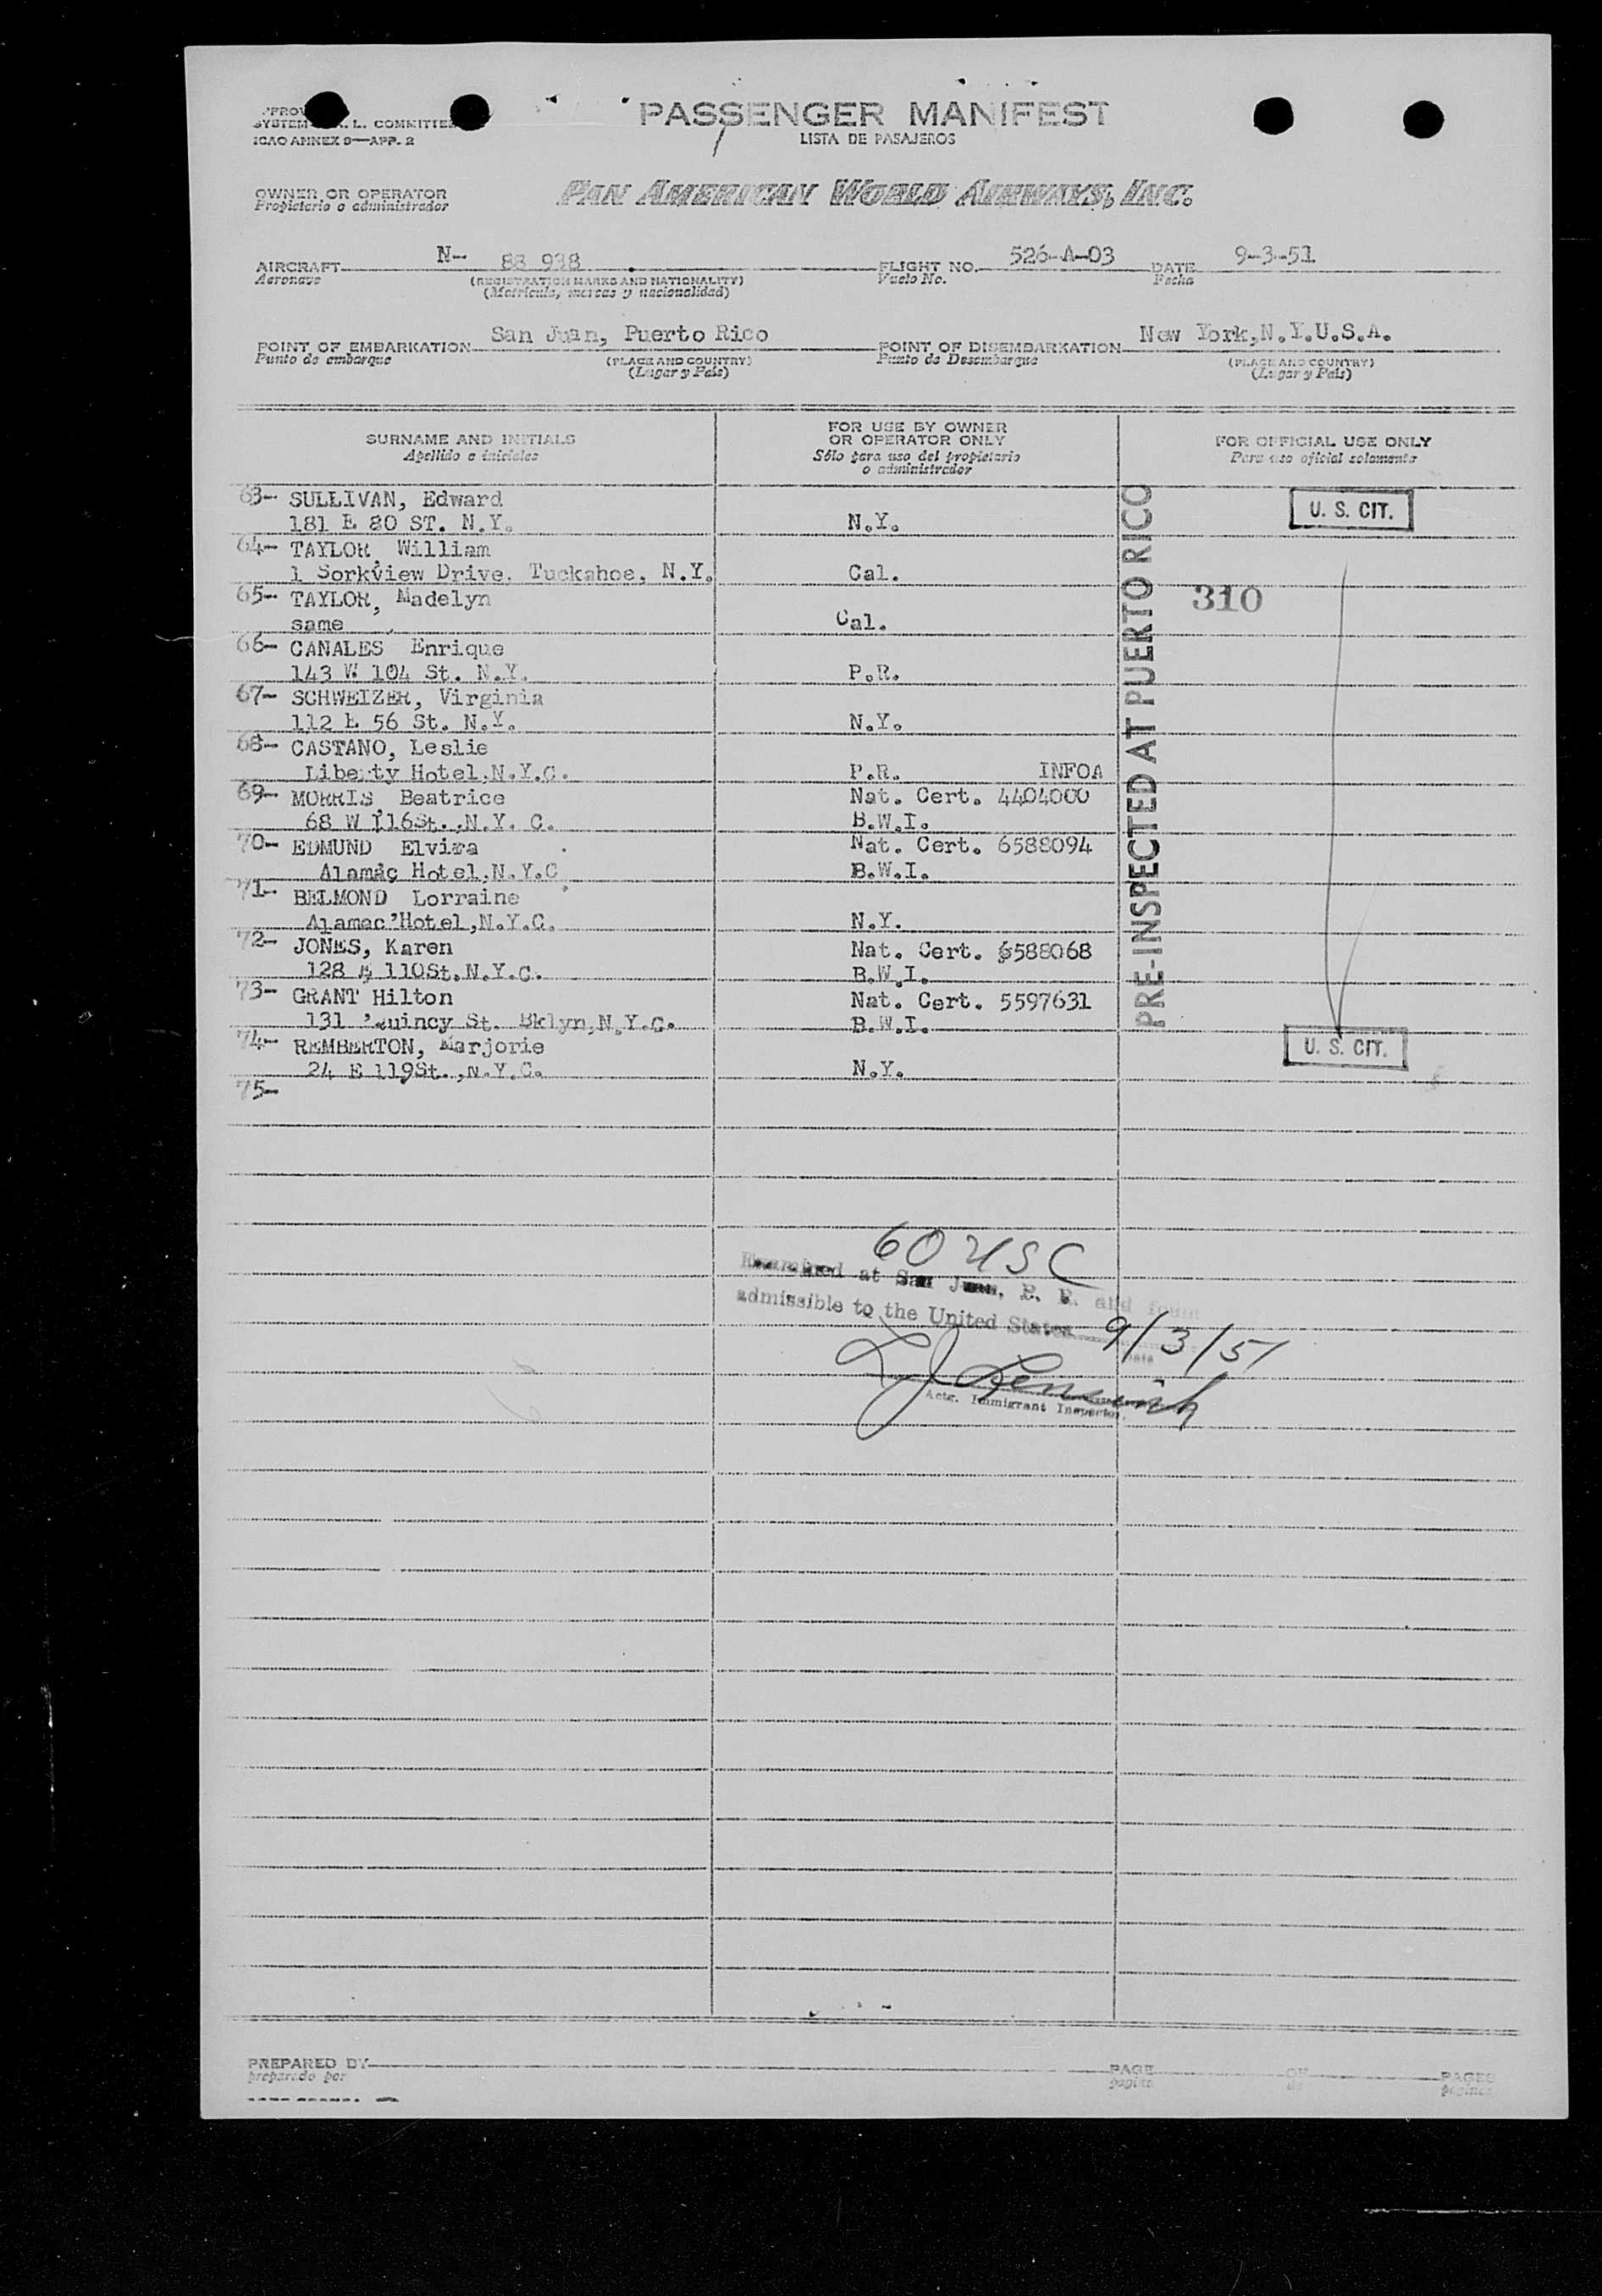 SYSTEM F.A.L. COMMITTEE
ICAO ANNEX 9—APP. 2
PASSENGER MANIFEST
LISTA DE PASAJEROS
OWNER OR OPERATOR
Propietario o administrador
PAN AMERICAN WORLD AIRWAYS, INC.
AIRCRAFT N- 88 938 FLIGHT NO. 526-A-03 DATE 9-3-51
Aeronave (REGISTRATION MARKS AND NATIONALITY) Vuelo No. Fecha
(Matrícula, marcas y nacionalidad)
POINT OF EMBARKATION San Juan, Puerto Rico POINT OF DISEMBARKATION New York,N.Y.U.S.A.
Punto de embarque (PLACE AND COUNTRY) Punto de Desembarque (PLACE AND COUNTRY)
(Lugar y País) (Lugar y País)
SURNAME AND INITIALS
Apellido e iniciales
FOR USE BY OWNER
OR OPERATOR ONLY
Sólo para uso del propietario
o administrador
FOR OFFICIAL USE ONLY
Para uso oficial solamente
PRE-INSPECTED AT PUERTO RICO
63- SULLIVAN, Edward U. S. CIT.
181 E 80 ST. N.Y. N.Y.
64- TAYLOR, William
1 Sorkview Drive. Tuckahoe, N.Y. Cal.
65- TAYLOR, Madelyn 310
same Cal.
66- CANALES Enrique
143 W 104 St. N.Y. P.R.
67- SCHWEIZER, Virginia
112 E 56 St. N.Y. N.Y.
68- CASTANO, Leslie
Liberty Hotel,N.Y.C. P.R. INFOA
69- MORRIS, Beatrice Nat. Cert. 4404000
68 W 116St.,N.Y. C. B.W.I.
70- EDMUND Elvira Nat. Cert. 6588094
Alamac Hotel,N.Y.C B.W.I.
71- BELMOND Lorraine
Alamac Hotel,N.Y.C. N.Y.
72- JONES, Karen Nat. Cert. 6588068
128 110St.N.Y.C. B.W.I.
73- GRANT Hilton Nat. Cert. 5597631
131 Quincy St. Bklyn,N.Y.C. B.W.I.
74- REMBERTON, Marjorie U. S. CIT.
24 E 119St.,N.Y.C. N.Y.
75-
60 USC
Examined at San Juan, P. R. and found
admissible to the United States 9/3/51
Date
Actg. Immigrant Inspector.
PREPARED BY PAGE OF PAGES
preparado por pagina de paginas